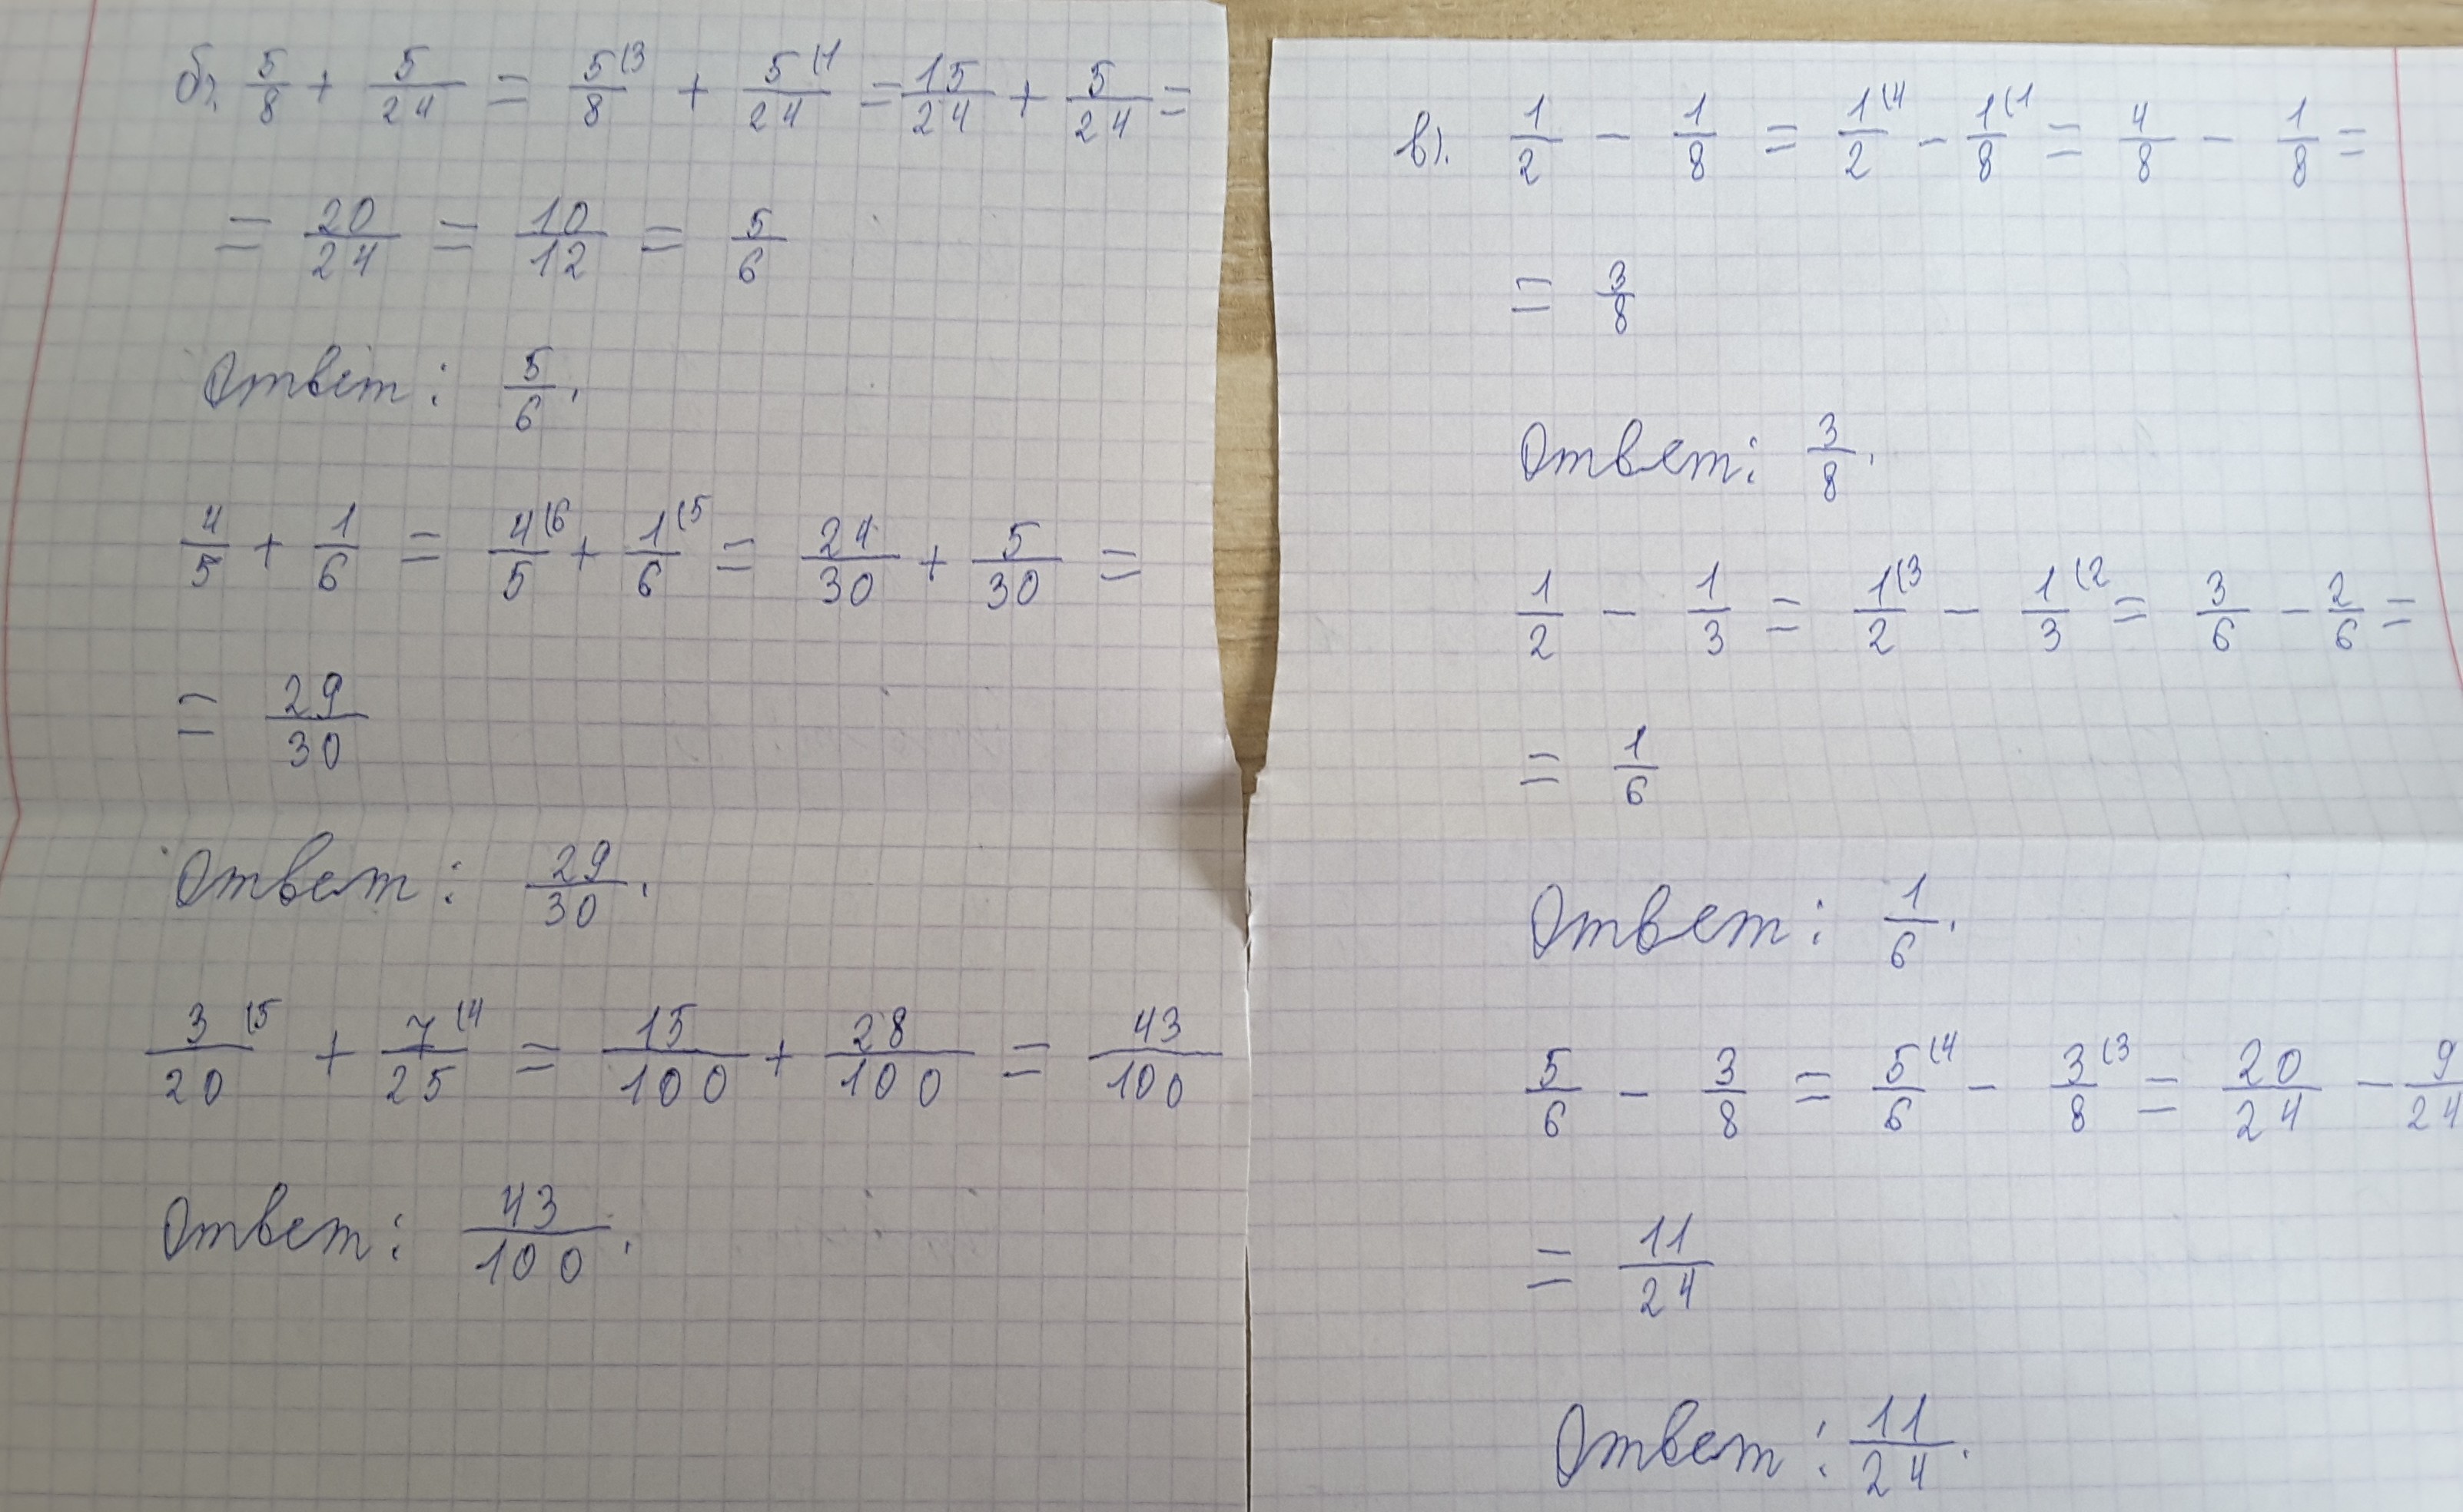 б). 5/8 + 5/24 = 5(3/8 + 5(1/24 = 15/24 + 5/24 =
= 20/24 = 10/12 = 5/6
Ответ: 5/6.
4/5 + 1/6 = 4(6/5 + 1(5/6 = 24/30 + 5/30 =
= 29/30
Ответ: 29/30.
3(5/20 + 7(4/25 = 15/100 + 28/100 = 43/100
Ответ: 43/100.
в). 1/2 - 1/8 = 1(4/2 - 1(1/8 = 4/8 - 1/8 =
= 3/8
Ответ: 3/8.
1/2 - 1/3 = 1(3/2 - 1(2/3 = 3/6 - 2/6 =
= 1/6
Ответ: 1/6.
5/6 - 3/8 = 5(4/6 - 3(3/8 = 20/24 - 9/24
= 11/24
Ответ: 11/24.